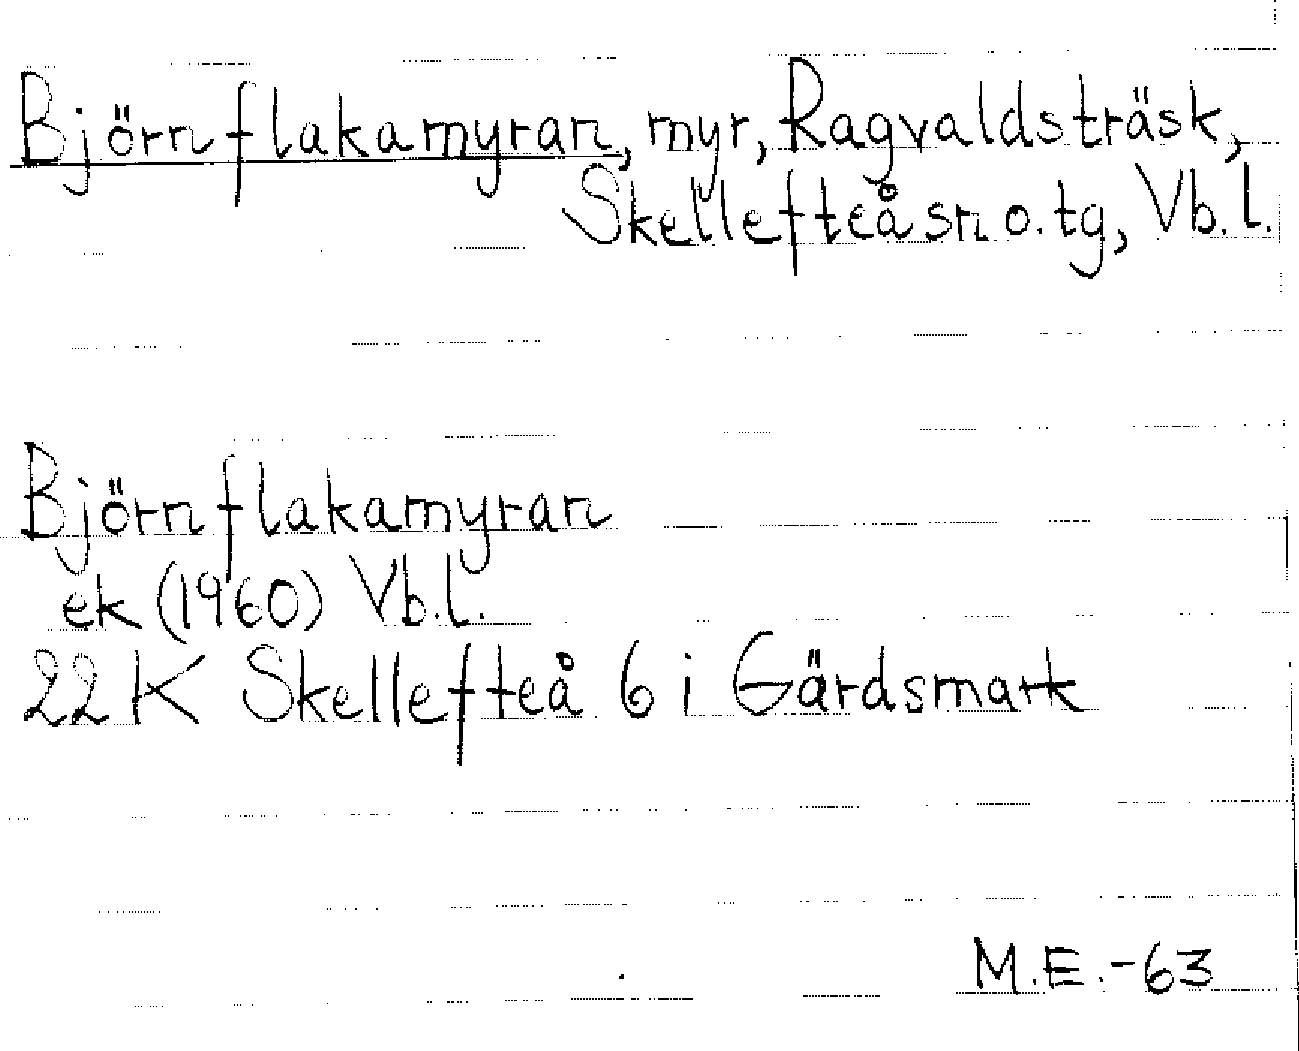 Björnflakamyran, myr, Ragvaldsträsk,
Skellefteå sn o. tg, Vb. l.
Björnflakamyran
ek (1960) Vb. l.
22 K Skellefteå 6 i Gärdsmark
M.E.-63